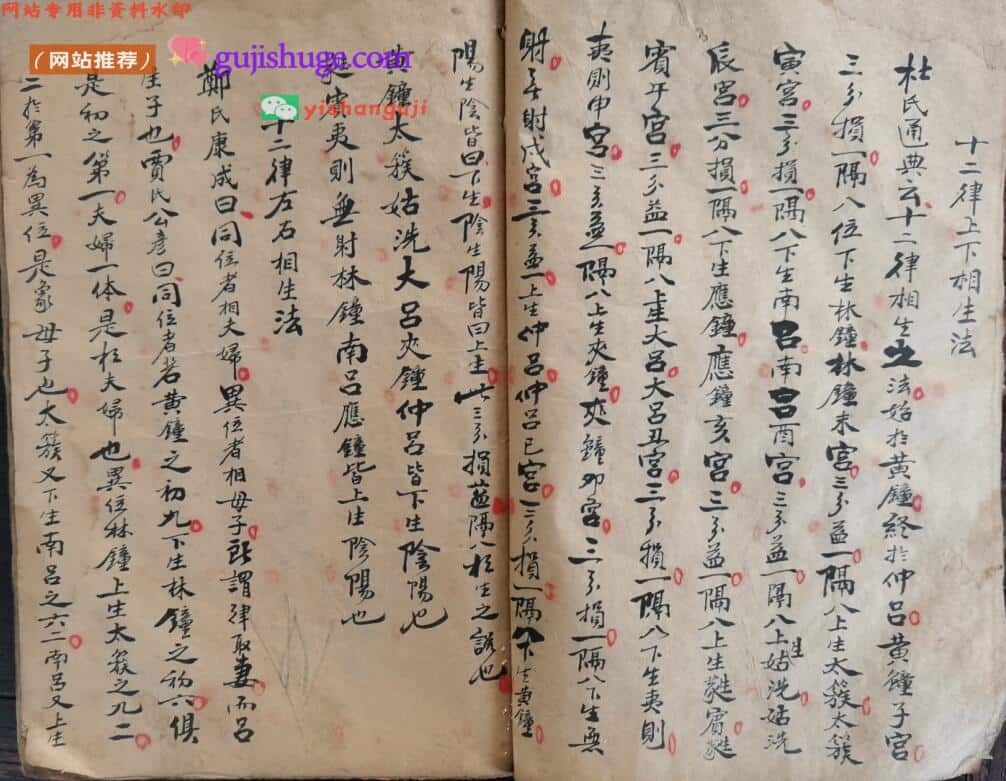 网站专用非资料水印
（网站推荐）
gujishuge.com
yishanguji
十二律上下相生法
杜氏通典云十二律相生之法始於黄鐘終於仲吕黄鐘子宫
三分損一隔八位下生林鐘林鐘未宫三分益一隔八上生太簇太簇
寅宫三分損一隔八下生南吕南吕酉宫三分益一隔八上生姑洗姑洗
辰宫三分損一隔八下生應鐘應鐘亥宫三分益一隔八上生蕤賓蕤
賓午宫三分益一隔八上生大吕大吕丑宫三分損一隔八下生夷則
夷則申宫三分益一隔八上生夾鐘夾鐘卯宫三分損一隔八下生無
射無射戌宫三分益一上生仲吕仲吕巳宫三分損一隔八下生黄鐘
陽生陰皆曰下生陰生陽皆曰上生此三分損益隔八相生之説也
黄鐘太簇姑洗大吕夾鐘仲吕皆下生陰陽也
蕤賓夷則無射林鐘南吕應鐘皆上生陰陽也
十二律左右相生法
鄭氏康成曰同位者相夫婦異位者相母子所謂律取妻而吕
生子也賈氏公彦曰同位者若黄鐘之初九下生林鐘之初六俱
是初之第一夫婦一体是於夫婦也異位林鐘上生太簇之九二
二於第一為異位是象母子也太簇又下生南吕之六二南吕又上生